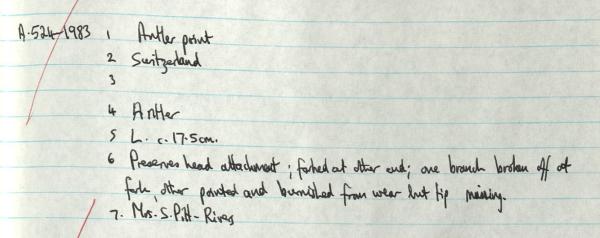 A.524-1983 1 Antler point
2 Switzerland
3
4 Antler
5 L. c. 17.5cm.
6 Preserves head attachment ; forked at other end; one branch broken off at
fork, other pointed and burnished from wear but tip missing.
7. Mrs. S. Pitt-Rivers